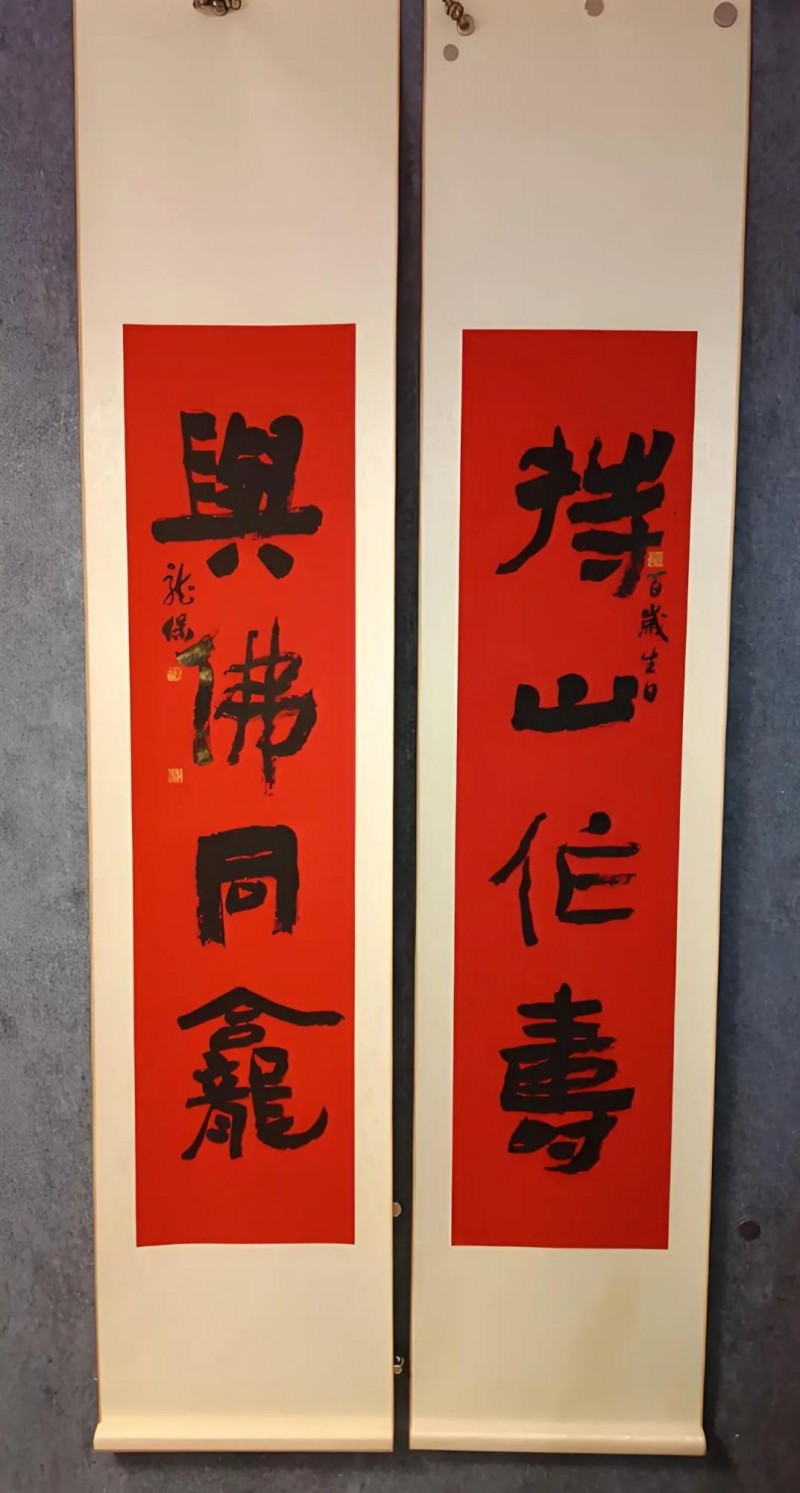 持山作壽
百歲生日
與佛同龕
龍保